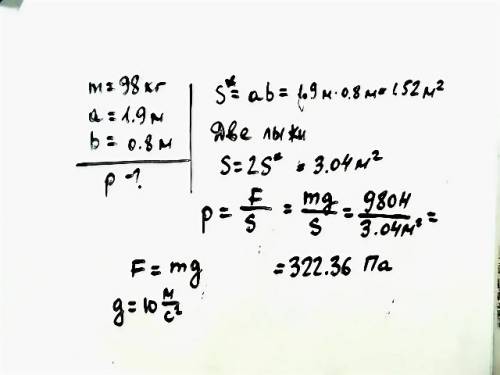 m = 98 кг
a = 1.9 м
b = 0.8 м
p - ?
S* = ab = 1.9 м · 0.8 м = 1.52 м²
Две лыжи
S = 2S* = 3.04 м²
p = F/S = mg/S = 980Н/3.04м² =
= 322.36 Па
F = mg
g = 10 м/с²